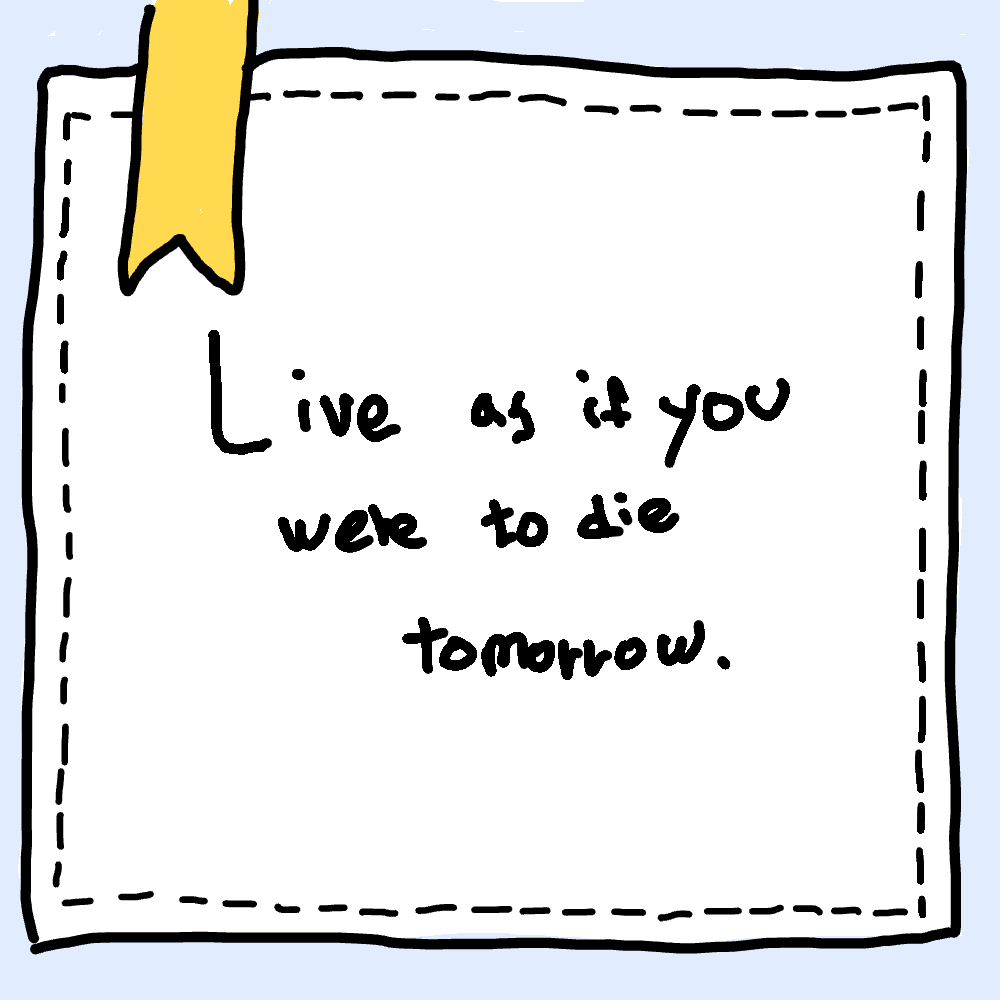 Live as if you
were to die
tomorrow.